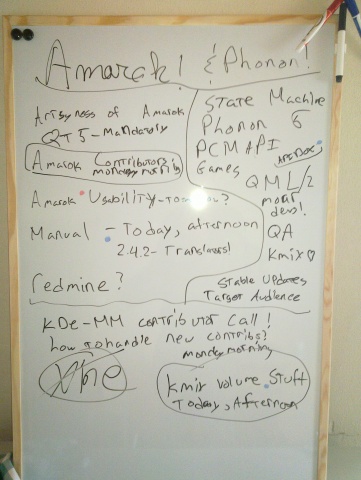 Amarok! & Phonon!
Artsyness of Amarok
QT5-Mandatory
Amarok Contributors
monday morning
Amarok Usability-
Manual - Today, afternoon
2.4.2- Translators!
redmine?
State Machine
Phonon 5
PCM API
Games
APIDOX
QML/2
more
devs!
QA
Kmix ♡
Stable Updates
Target Audience
KDe-MM contributor call!
how to handle new contribs?
monday morning
Xine
Kmix volume Stuff
Today, Afternoon